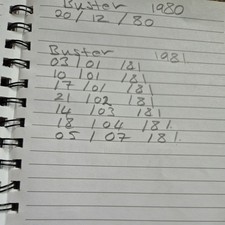 Buster 1980
00/12/80
Buster 1981
03/01/81
10/01/81
17/01/81
21/02/81
14/03/81
18/04/81.
05/07/81.